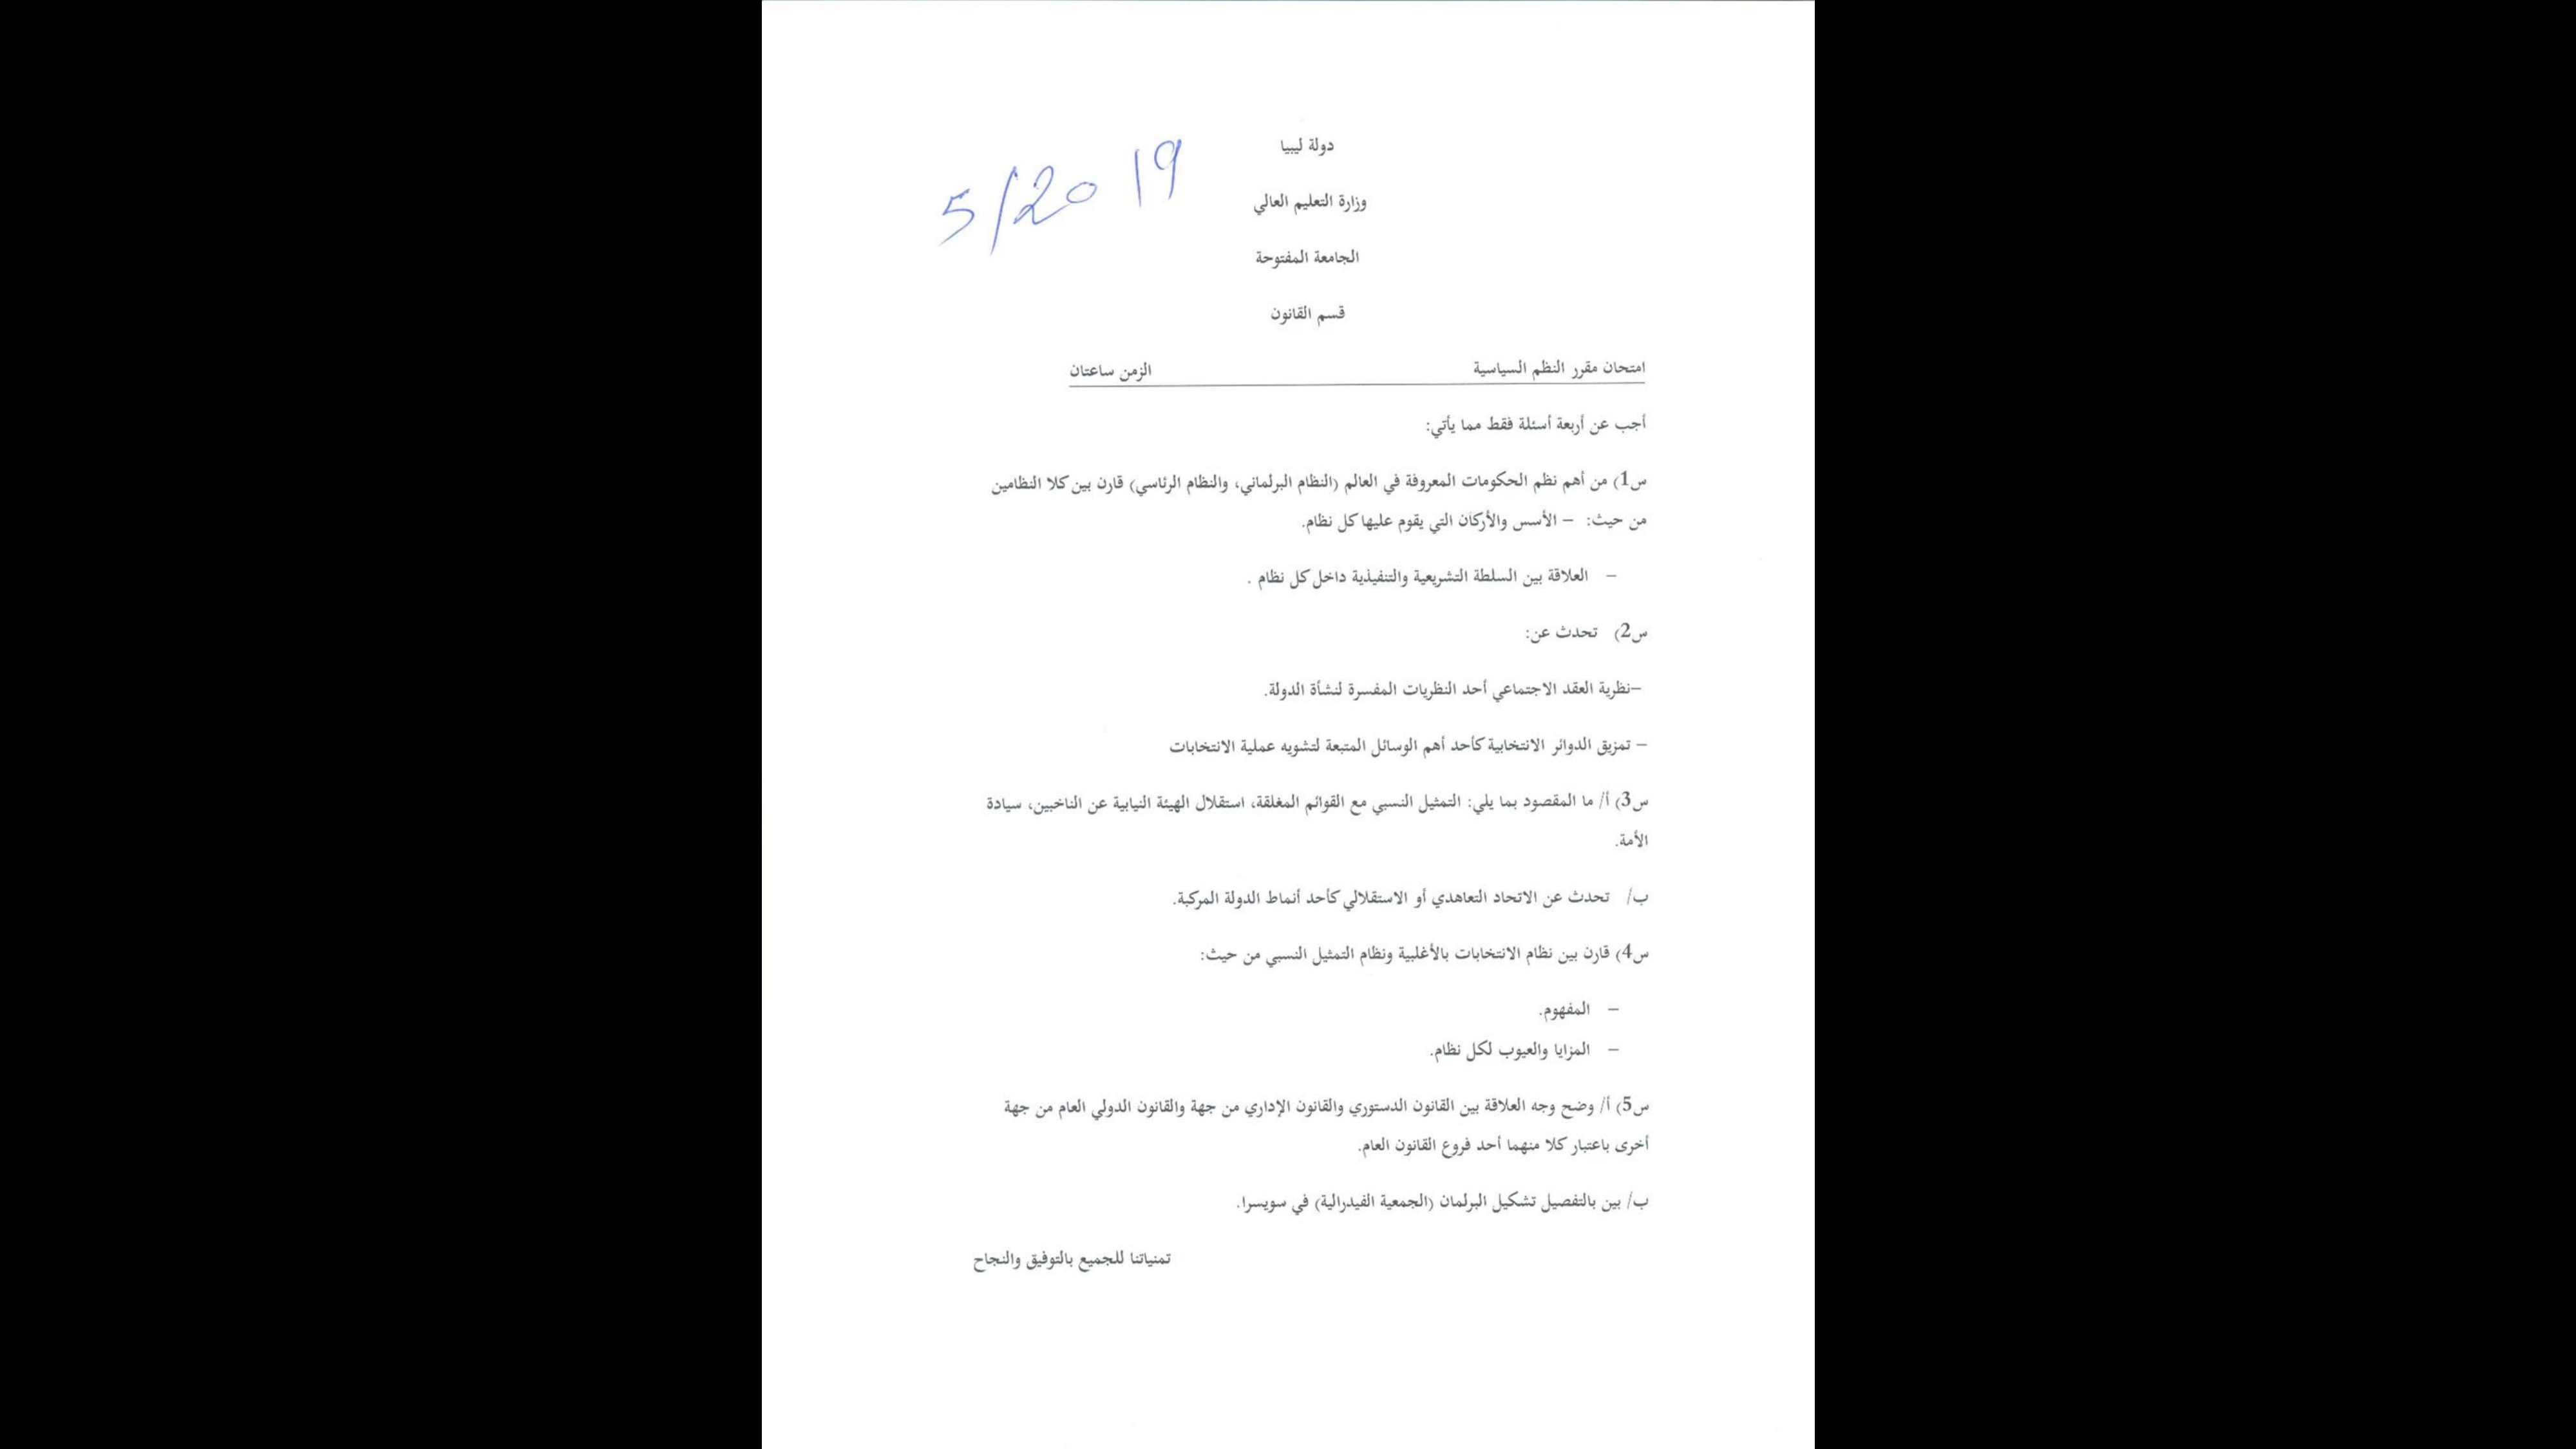 دولة ليبيا
5/2019
وزارة التعليم العالي
الجامعة المفتوحة
قسم القانون
امتحان مقرر النظم السياسية الزمن ساعتان
أجب عن أربعة أسئلة فقط مما يأتي:
س1) من أهم نظم الحكومات المعروفة في العالم (النظام البرلماني، والنظام الرئاسي) قارن بين كلا النظامين
من حيث: – الأسس والأركان التي يقوم عليها كل نظام.
– العلاقة بين السلطة التشريعية والتنفيذية داخل كل نظام .
س2) تحدث عن:
–نظرية العقد الاجتماعي أحد النظريات المفسرة لنشأة الدولة.
– تمزيق الدوائر الانتخابية كأحد أهم الوسائل المتبعة لتشويه عملية الانتخابات
س3) أ/ ما المقصود بما يلي: التمثيل النسبي مع القوائم المغلقة، استقلال الهيئة النيابية عن الناخبين، سيادة
الأمة.
ب/ تحدث عن الاتحاد التعاهدي أو الاستقلالي كأحد أنماط الدولة المركبة.
س4) قارن بين نظام الانتخابات بالأغلبية ونظام التمثيل النسبي من حيث:
– المفهوم.
– المزايا والعيوب لكل نظام.
س5) أ/ وضح وجه العلاقة بين القانون الدستوري والقانون الإداري من جهة والقانون الدولي العام من جهة
أخرى باعتبار كلا منهما أحد فروع القانون العام.
ب/ بين بالتفصيل تشكيل البرلمان (الجمعية الفيدرالية) في سويسرا.
تمنياتنا للجميع بالتوفيق والنجاح